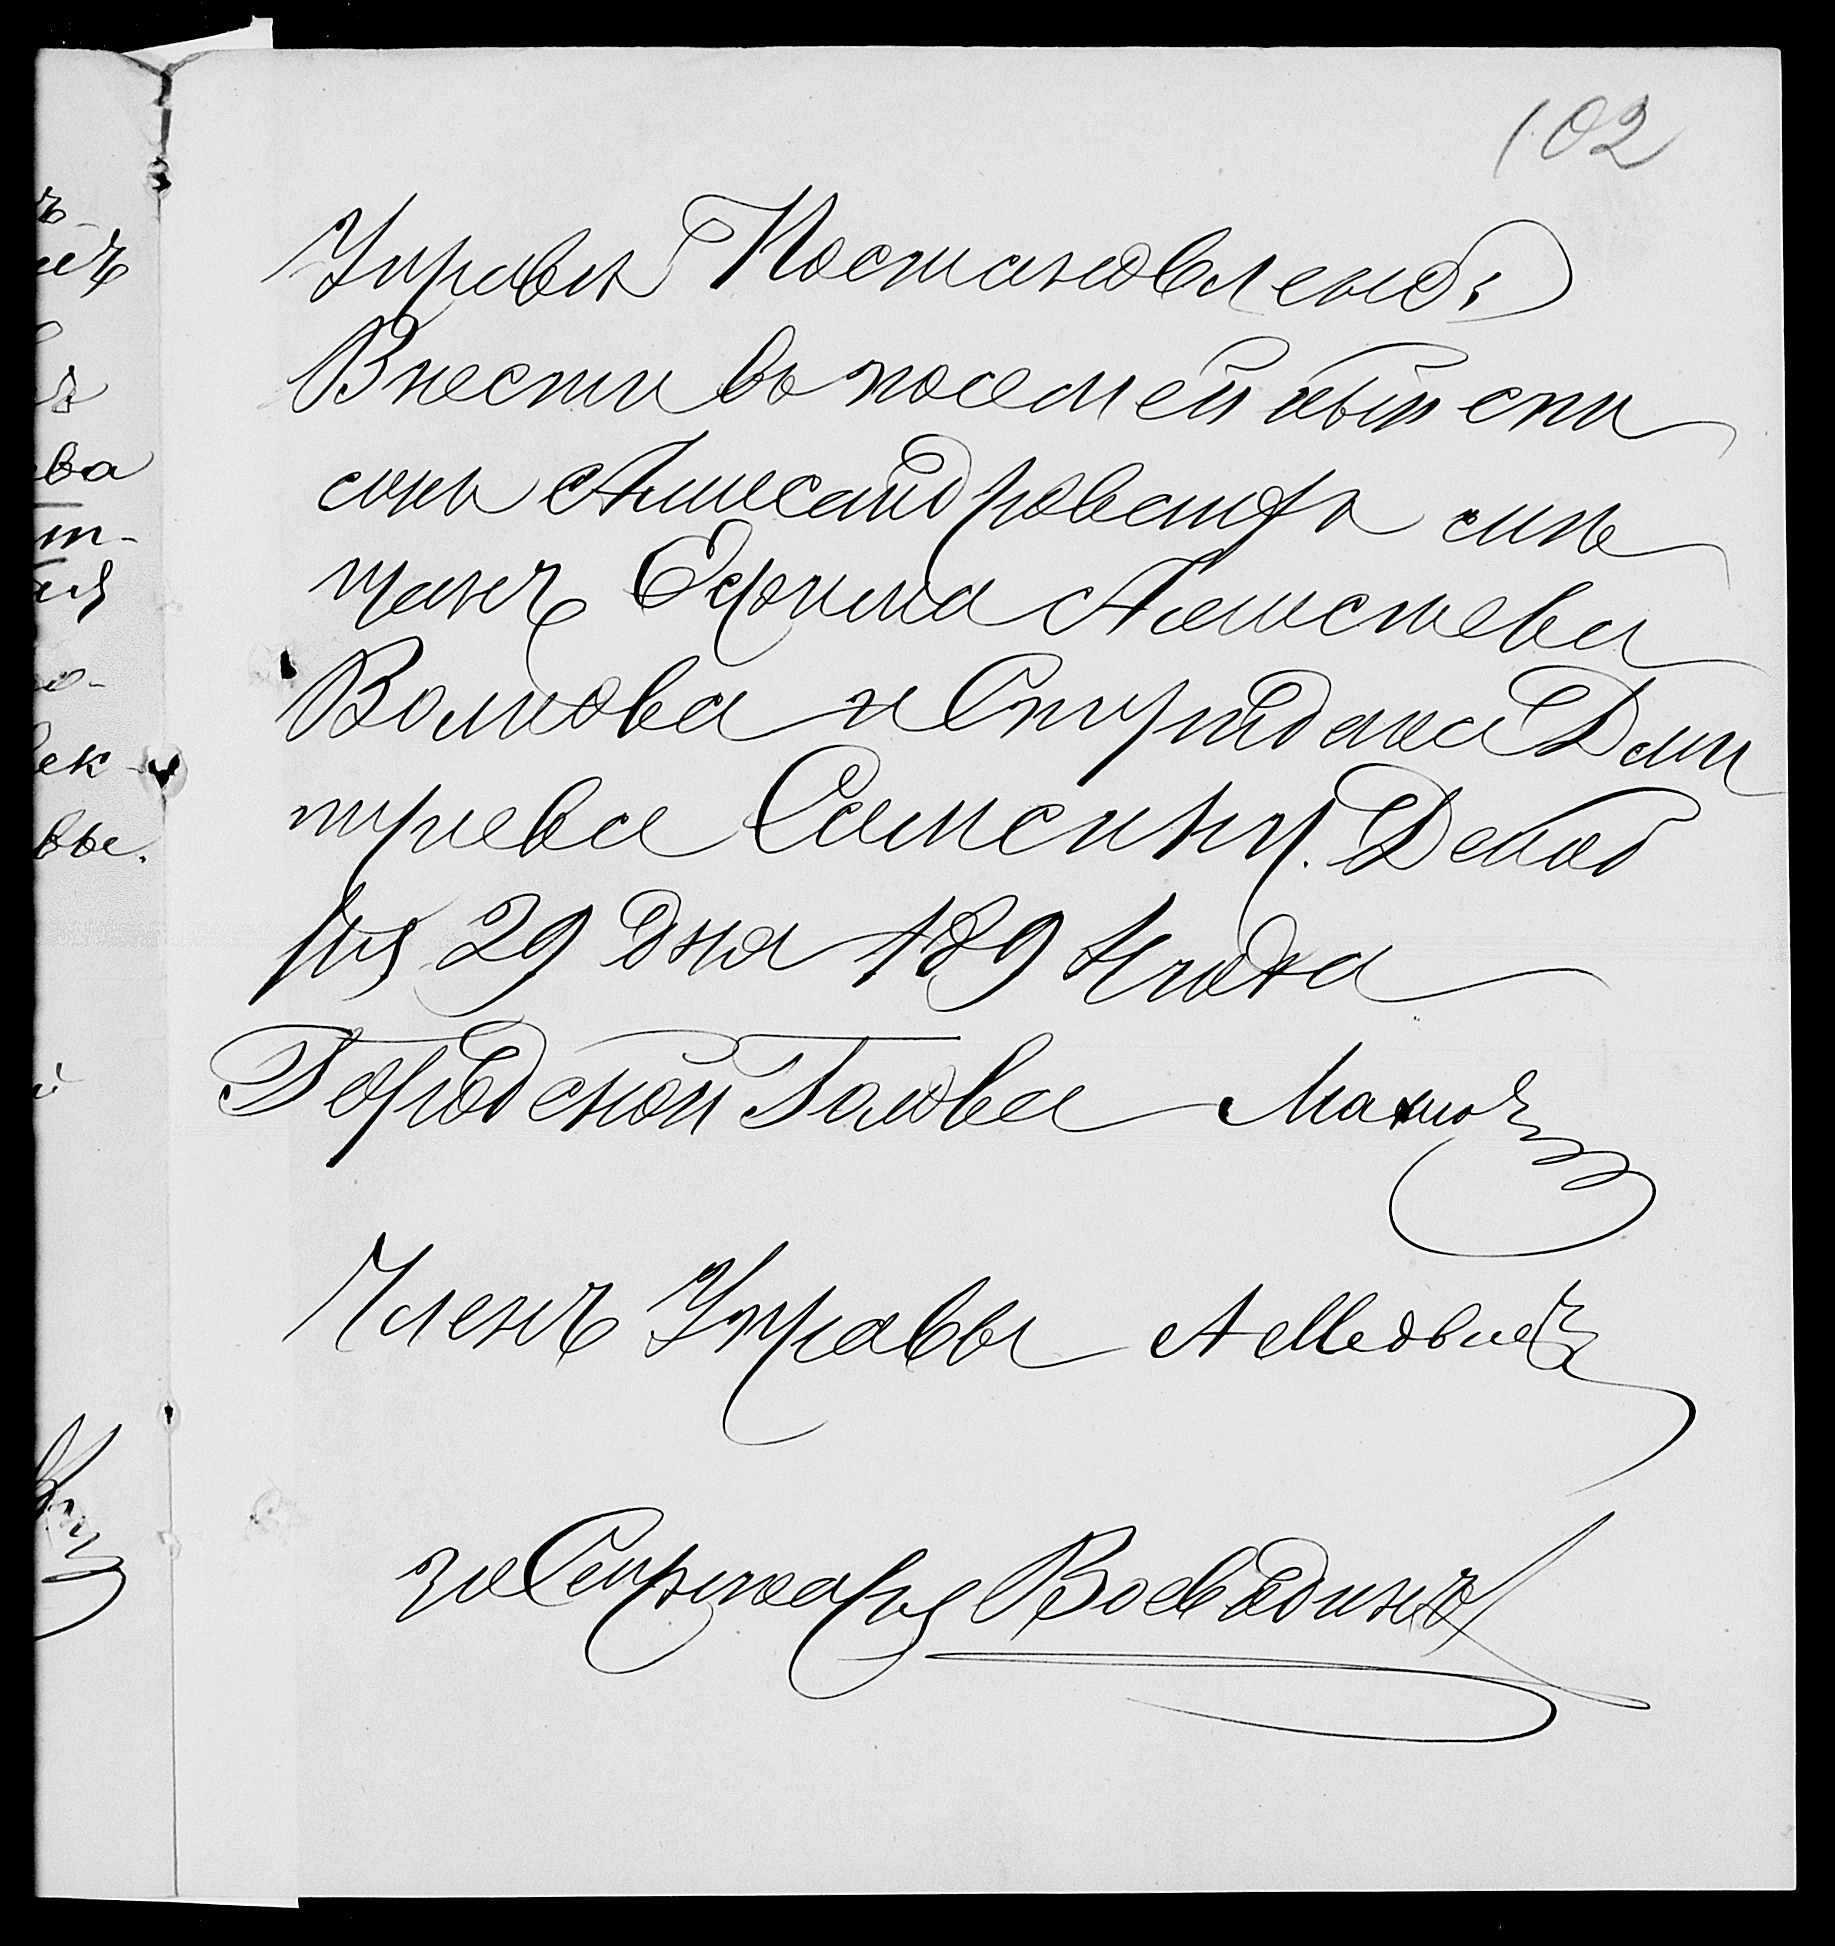 102
Управы Постановлено:
Внести въ посемейный спи
сокъ Александровскихъ мѣ
щанъ Ефима Алексѣева
Волкова и Спиридона Дми
тріева Самсина. Декаб
ря 29 дня 1894 года
Городской Голова
Членъ Управы А Медвѣдевъ
за Секретаря Воеводинъ